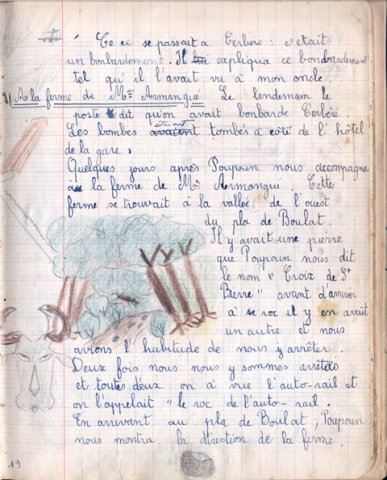 Ce ci se passait a Cerbère : c'était
un bonbardement. Il expliqua ce bonbardement
tel qu'il l'avait vu à mon oncle.
A la ferme de Mr Armangué Le lendemain le
porte dit qu'on avait bonbardé Cerbère
Les bombes étaient tombés a coté de l'hôtel
de la gare.
Quelques jours après Poupoun nous accompagne
a la ferme de Mr Armangui. Cette
ferme se trouvait à la vallée de l'ouest
du pla de Boulat.
Il y avait une pierre
que Poupoun nous dit
le nom " Croix de St
Pierre " avant d'arriver
à se roc il y en avait
un autre et nous
avions l'habitude de nous y arrêter.
Deux fois nous nous y sommes arrêtés
et toutes deux on a vue l'auto-rail et
on l'appelait " le roc de l'auto-rail.
En arrivant au pla de Boulat, Poupoun
nous montra la direction de la ferme.
19